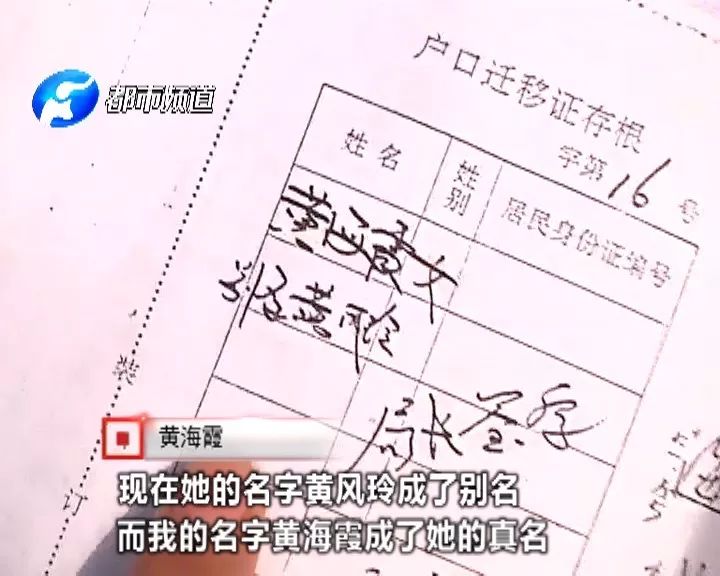 都市频道
户口迁移证存根
字第16号
姓名
姓别
居民身份证编号
黄海霞 女
别名黄风玲
局长签字
装
订
黄海霞
现在她的名字黄风玲成了别名
而我的名字黄海霞成了她的真名